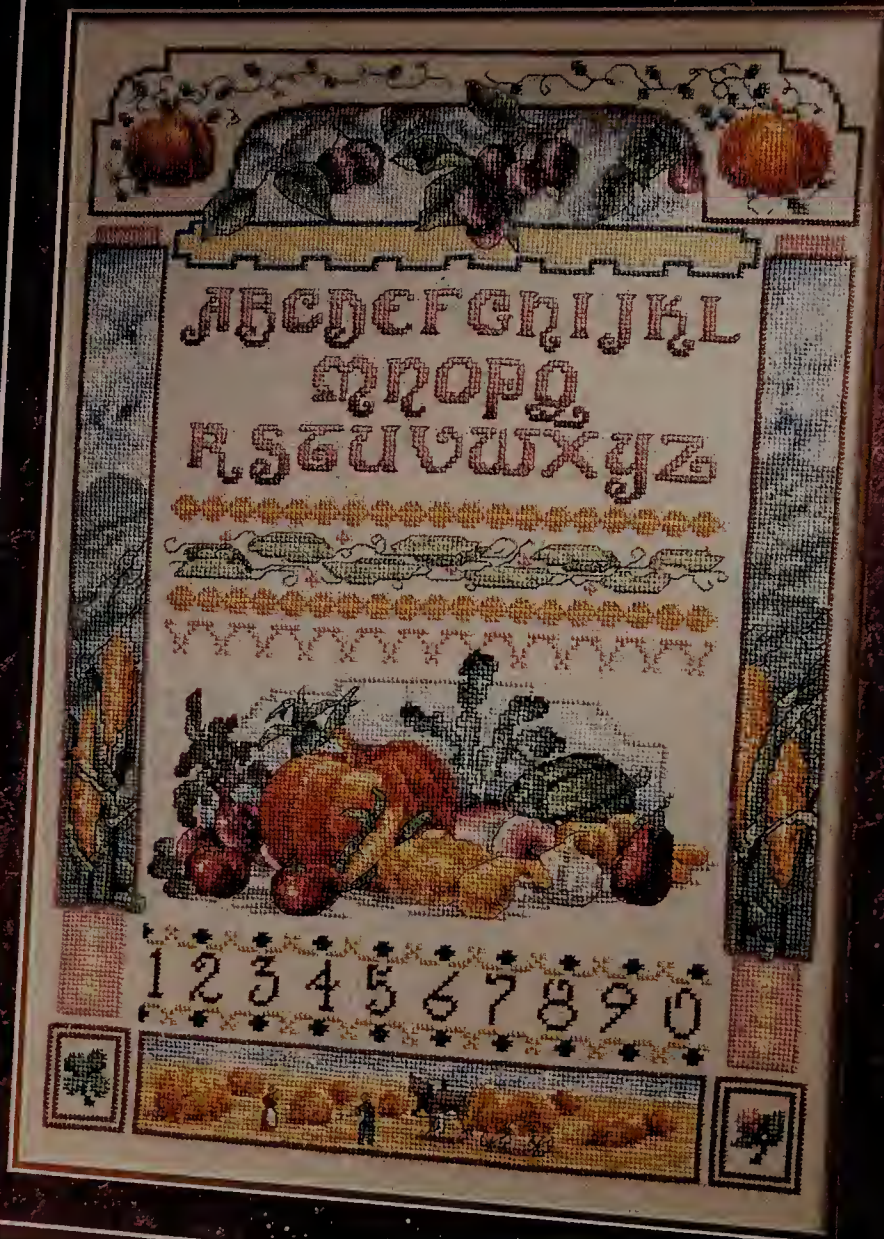 ABCDEFGHIJKL
MNOPQ
RSTUVWXYZ
1234567890